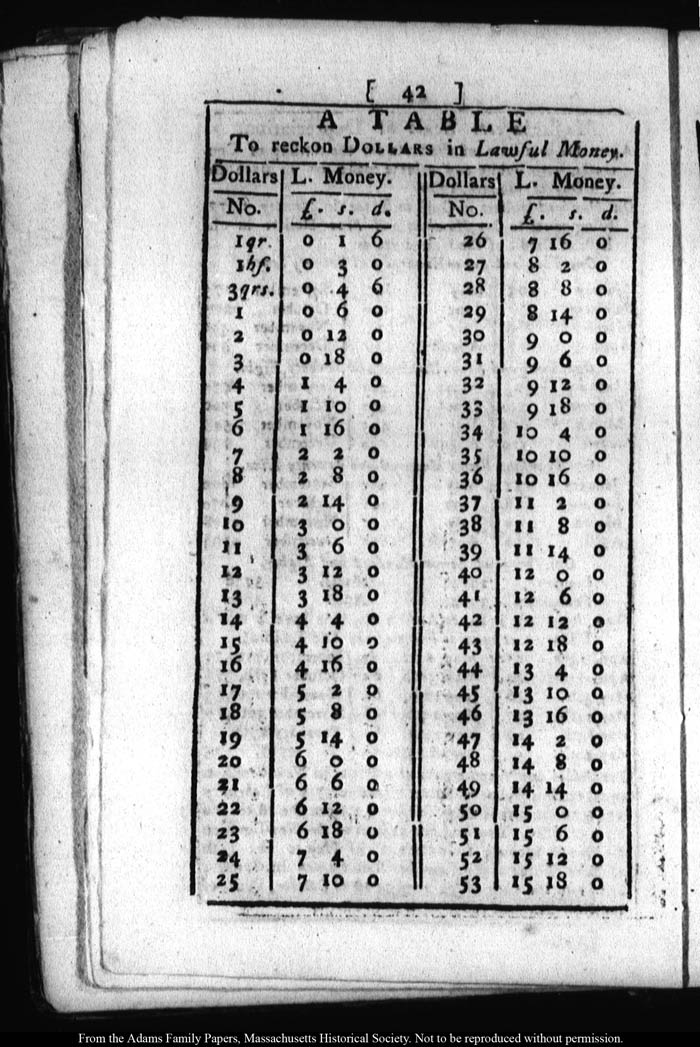 [ 42 ]
A TABLE
To reckon DOLLARS in Lawful Money.
Dollars L. Money. Dollars L. Money.
No. £. s. d. No. £. s. d.
1qr. 0 1 6 26 7 16 0
1hf. 0 3 0 27 8 2 0
3qrs. 0 4 6 28 8 8 0
1 0 6 0 29 8 14 0
2 0 12 0 30 9 0 0
3 0 18 0 31 9 6 0
4 1 4 0 32 9 12 0
5 1 10 0 33 9 18 0
6 1 16 0 34 10 4 0
7 2 2 0 35 10 10 0
8 2 8 0 36 10 16 0
9 2 14 0 37 11 2 0
10 3 0 0 38 11 8 0
11 3 6 0 39 11 14 0
12 3 12 0 40 12 0 0
13 3 18 0 41 12 6 0
14 4 4 0 42 12 12 0
15 4 10 0 43 12 18 0
16 4 16 0 44 13 4 0
17 5 2 0 45 13 10 0
18 5 8 0 46 13 16 0
19 5 14 0 47 14 2 0
20 6 0 0 48 14 8 0
21 6 6 0 49 14 14 0
22 6 12 0 50 15 0 0
23 6 18 0 51 15 6 0
24 7 4 0 52 15 12 0
25 7 10 0 53 15 18 0
From the Adams Family Papers, Massachusetts Historical Society. Not to be reproduced without permission.